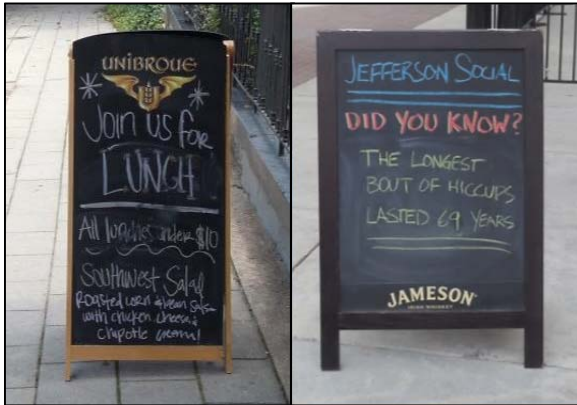 UNIBROUE
Join us for
LUNCH
All lunches under $10
Southwest Salad
Roasted corn & bean salsa
with chicken cheese &
chipotle cream!
JEFFERSON SOCIAL
DID YOU KNOW?
THE LONGEST
BOUT OF HICCUPS
LASTED 69 YEARS
JAMESON
IRISH WHISKEY